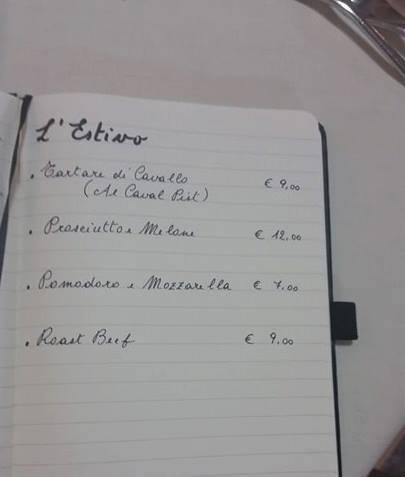 L'Estivo
. Tartare di Cavallo € 9,00
(Al Caval Pist)
. Prosciutto e Melone € 12,00
. Pomodoro e Mozzarella € 7,00
. Roast Beef € 9,00